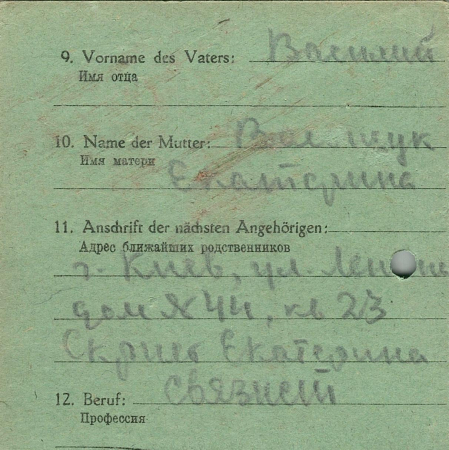 9. Vorname des Vaters: Василий
Имя отца
10. Name der Mutter:
Имя матери
Екатерина
11. Anschrift der nächsten Angehörigen:
Адрес ближайших родственников
г. Киев, ул. Ленина
дом № 44, кв 23
Екатерина
12. Beruf: связист
Профессия